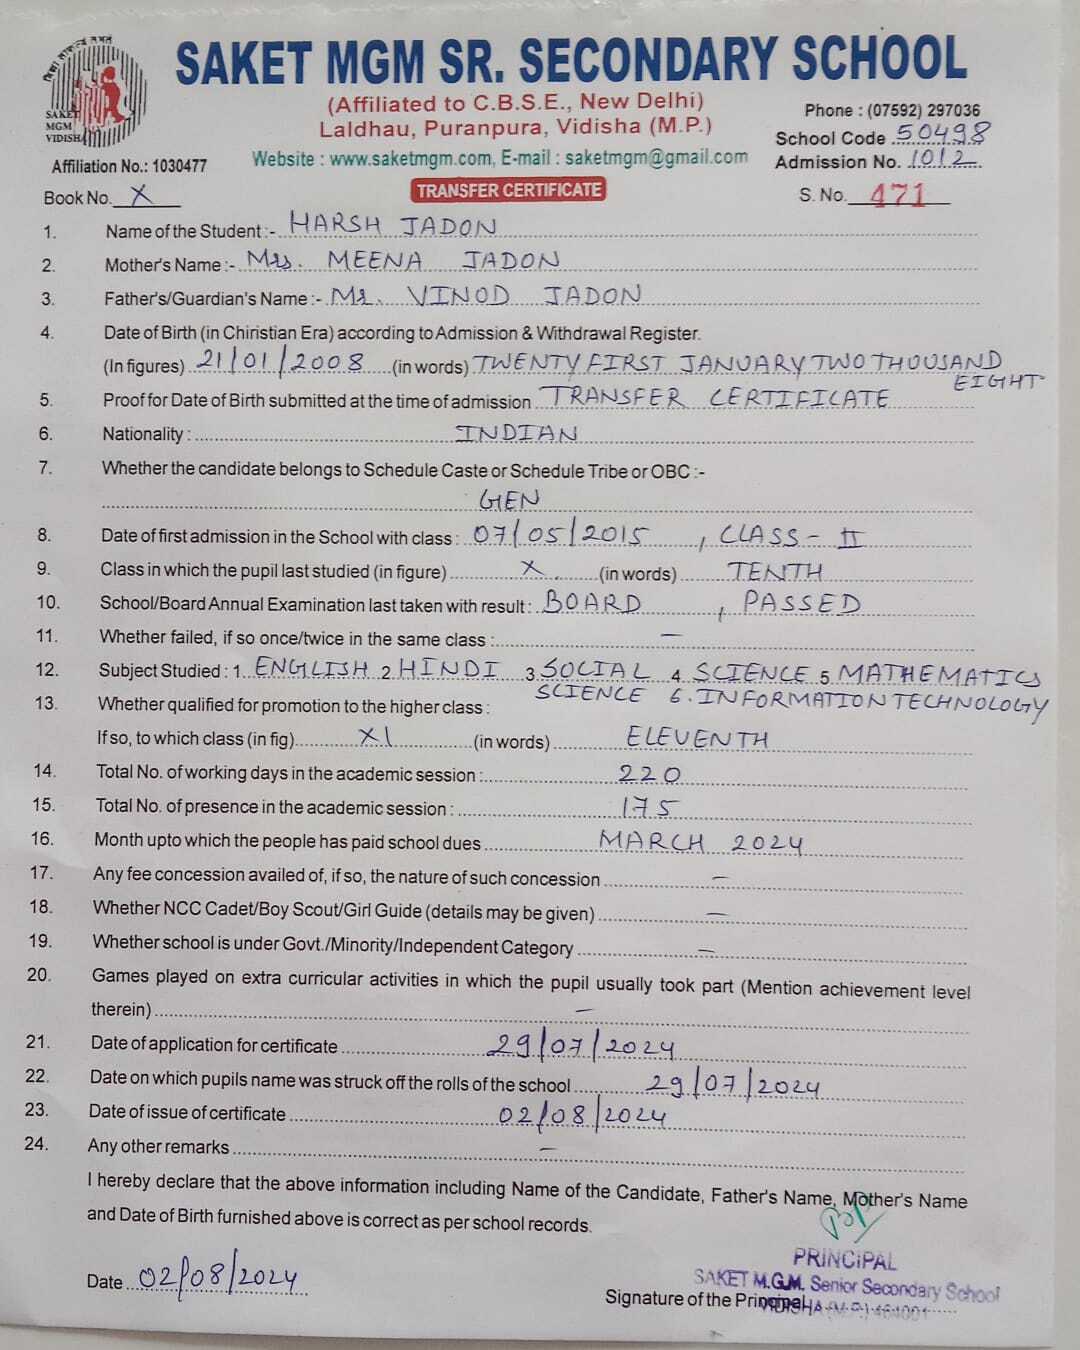 SAKET MGM SR. SECONDARY SCHOOL
(Affiliated to C.B.S.E., New Delhi)
Laldhau, Puranpura, Vidisha (M.P.)
Website : www.saketmgm.com, E-mail : saketmgm@gmail.com
SAKET
MGM
VIDISHA
Phone : (07592) 297036
School Code 50498
Admission No. 1012
Affiliation No.: 1030477
Book No. X
TRANSFER CERTIFICATE
S. No. 471
1. Name of the Student :- HARSH JADON
2. Mother's Name :- Mrs. MEENA JADON
3. Father's/Guardian's Name :- Mr. VINOD JADON
4. Date of Birth (in Chiristian Era) according to Admission & Withdrawal Register.
(In figures) 21/01/2008 (in words) TWENTY FIRST JANUARY TWO THOUSAND
EIGHT
5. Proof for Date of Birth submitted at the time of admission TRANSFER CERTIFICATE
6. Nationality : INDIAN
7. Whether the candidate belongs to Schedule Caste or Schedule Tribe or OBC :-
GEN
8. Date of first admission in the School with class : 07/05/2015 , CLASS - II
9. Class in which the pupil last studied (in figure) X (in words) TENTH
10. School/Board Annual Examination last taken with result : BOARD , PASSED
11. Whether failed, if so once/twice in the same class : —
12. Subject Studied : 1. ENGLISH 2. HINDI 3. SOCIAL 4. SCIENCE 5. MATHEMATICS
SCIENCE 6. INFORMATION TECHNOLOGY
13. Whether qualified for promotion to the higher class :
If so, to which class (in fig) XI (in words) ELEVENTH
14. Total No. of working days in the academic session : 220
15. Total No. of presence in the academic session : 175
16. Month upto which the people has paid school dues MARCH 2024
17. Any fee concession availed of, if so, the nature of such concession —
18. Whether NCC Cadet/Boy Scout/Girl Guide (details may be given) —
19. Whether school is under Govt./Minority/Independent Category —
20. Games played on extra curricular activities in which the pupil usually took part (Mention achievement level
therein) —
21. Date of application for certificate 29/07/2024
22. Date on which pupils name was struck off the rolls of the school 29/07/2024
23. Date of issue of certificate 02/08/2024
24. Any other remarks —
I hereby declare that the above information including Name of the Candidate, Father's Name, Mother's Name
and Date of Birth furnished above is correct as per school records.
PRINCIPAL
SAKET M.G.M. Senior Secondary School
VIDISHA (M.P.) 464001
Date 02/08/2024
Signature of the Principal